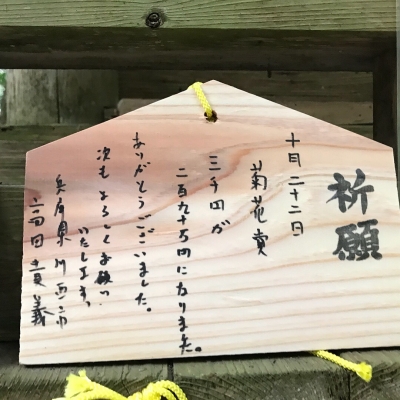 祈願
十月二十二日
菊花賞
三千円が
二百九十万円になりました。
ありがとうございました。
次もよろしくお願い
いたします。
兵庫県川西市
高田貴義